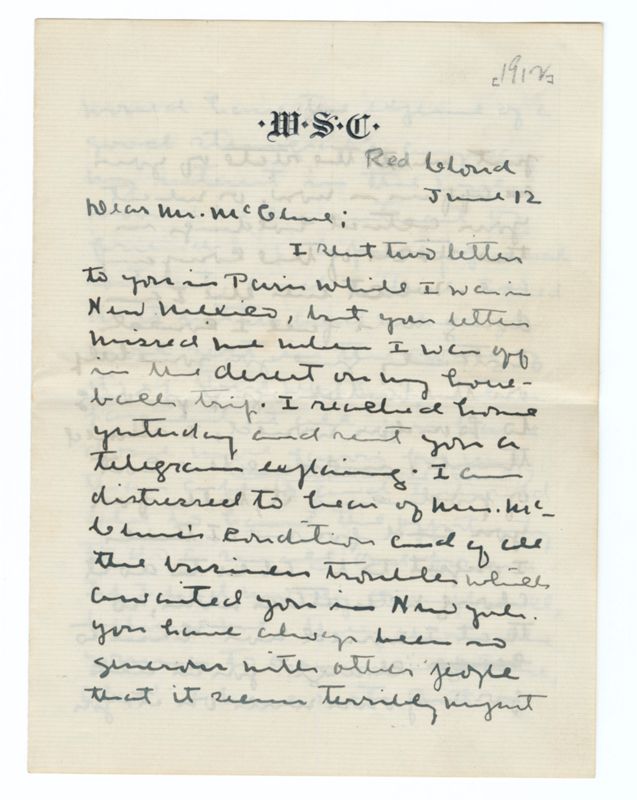 [1912]
·W·S·C·
Red Cloud
June 12
Dear Mr. McClure;
I sent two letters
to you in Paris while I was in
New Mexico, but your letters
missed me when I was off
in the desert on my
trip. I reached home
yesterday and sent you a
telegram explaining. I am
distressed to hear of Mrs. Mc-
Clure's condition and of all
the business troubles which
awaited you in New York.
You have always been so
generous with other people
that it seems terribly unjust